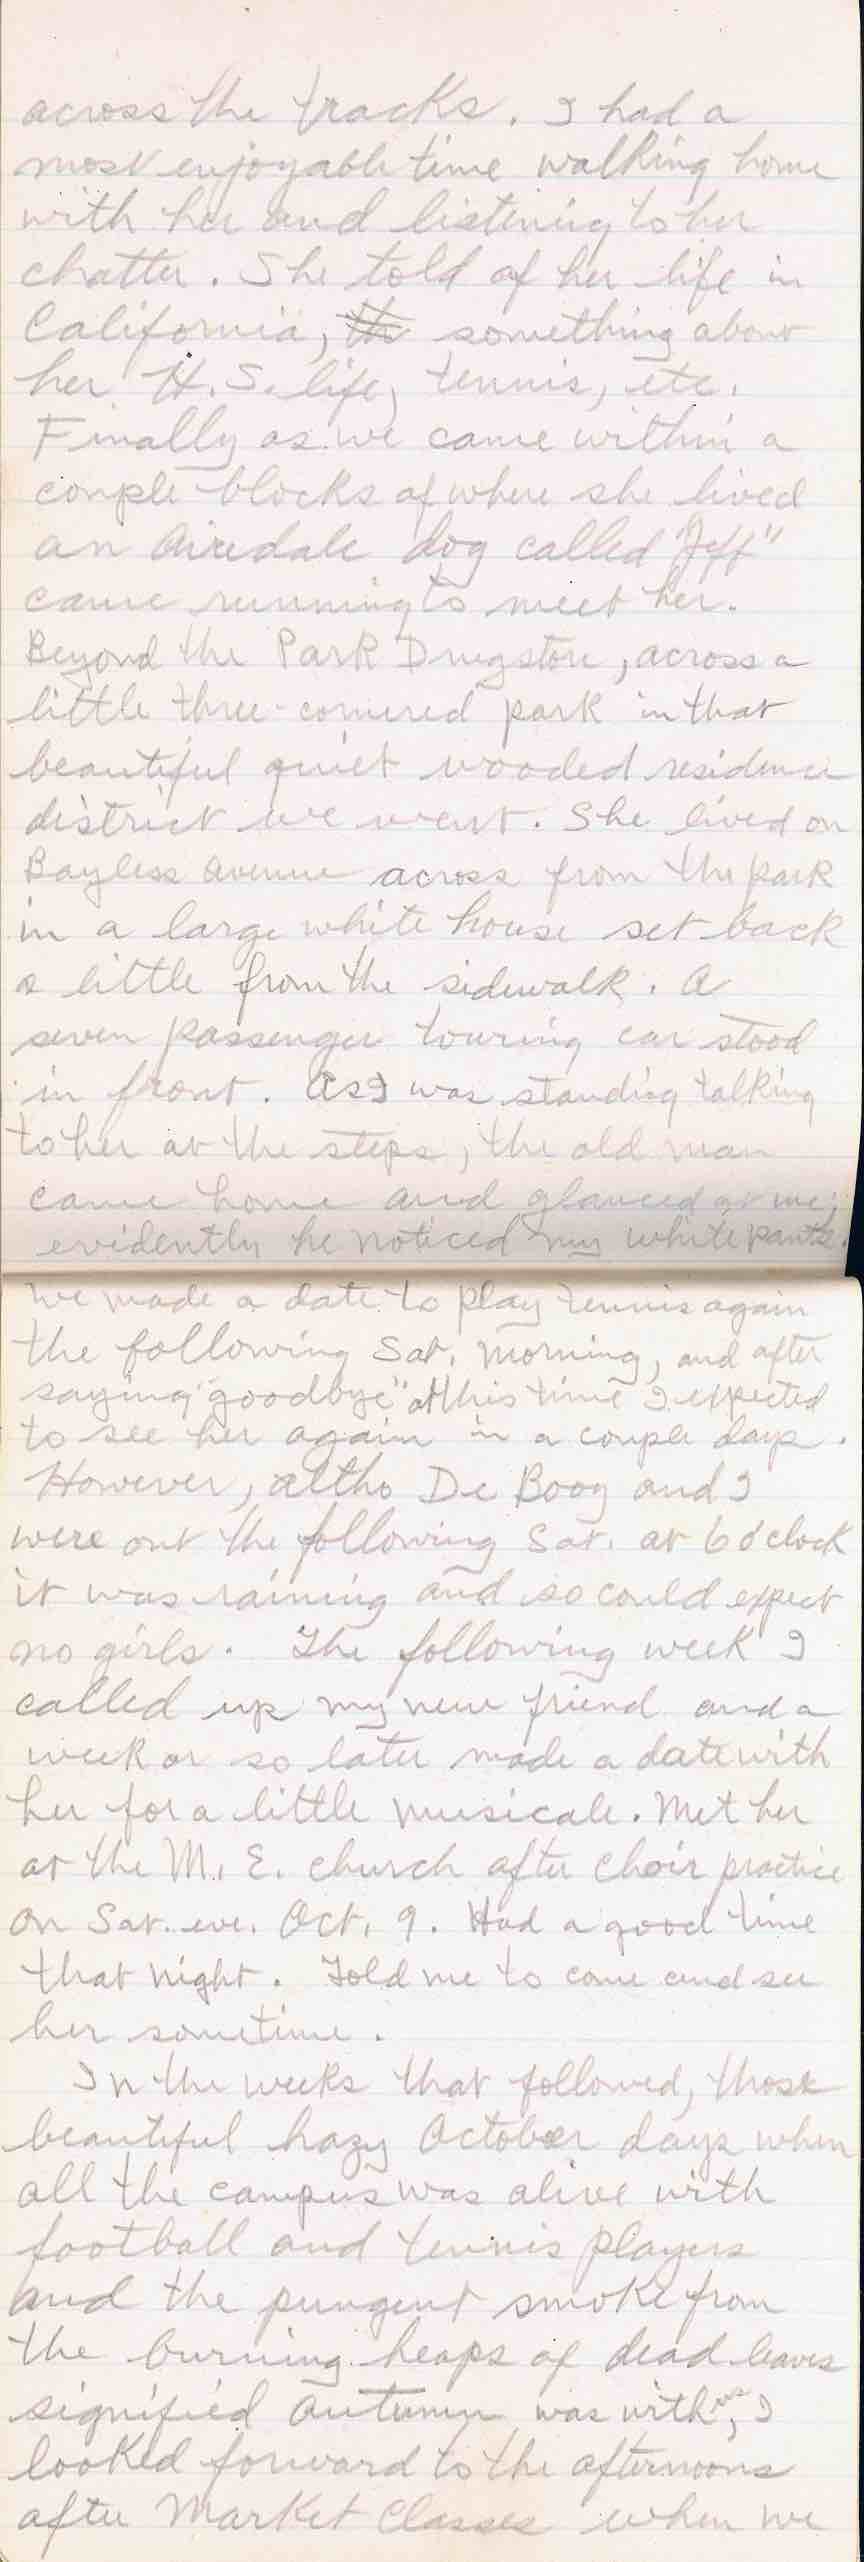 across the tracks. I had a
most enjoyable time walking home
with her and listening to her
chatter. She told of her life in
California, th something about
her H.S. life, tennis, etc.
Finally as we came within a
couple blocks of where she lived
an Airedale dog called "Jeff"
came running to meet her.
Beyond the Park Drugstore, across a
little three-cornered park in that
beautiful quiet wooded residence
district we went. She lived on
Bayless Avenue across from the park
in a large white house set back
a little from the sidewalk. A
seven passenger touring car stood
in front. As I was standing talking
to her at the steps, the old man
came home and glanced at me;
evidently he noticed my white pants.
We made a date to play tennis again
the following Sat. morning, and after
saying "goodbye" at this time I expected
to see her again in a couple days.
However, altho De Boog and I
were out the following Sat. at 6 o'clock
it was raining and so could expect
no girls. The following week I
called up my new friend and a
week or so later made a date with
her for a little musicale. Met her
at the M. E. church after choir practice
on Sat. eve. Oct. 9. Had a good time
that night. Told me to come and see
her sometime.
In the weeks that followed, those
beautiful hazy October days when
all the campus was alive with
football and tennis players
and the pungent smoke from
the burning heaps of dead leaves
signified Autumn was with us, I
looked forward to the afternoons
after Market Classes when we